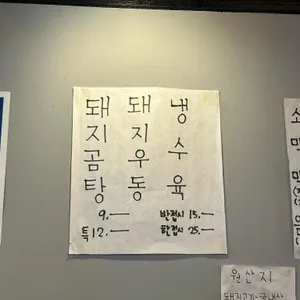 돼지곰탕
돼지우동
냉수육
9.—
특 12.—
반접시 15.—
한접시 25.—
소
막
원산지
돼지고기-국내산